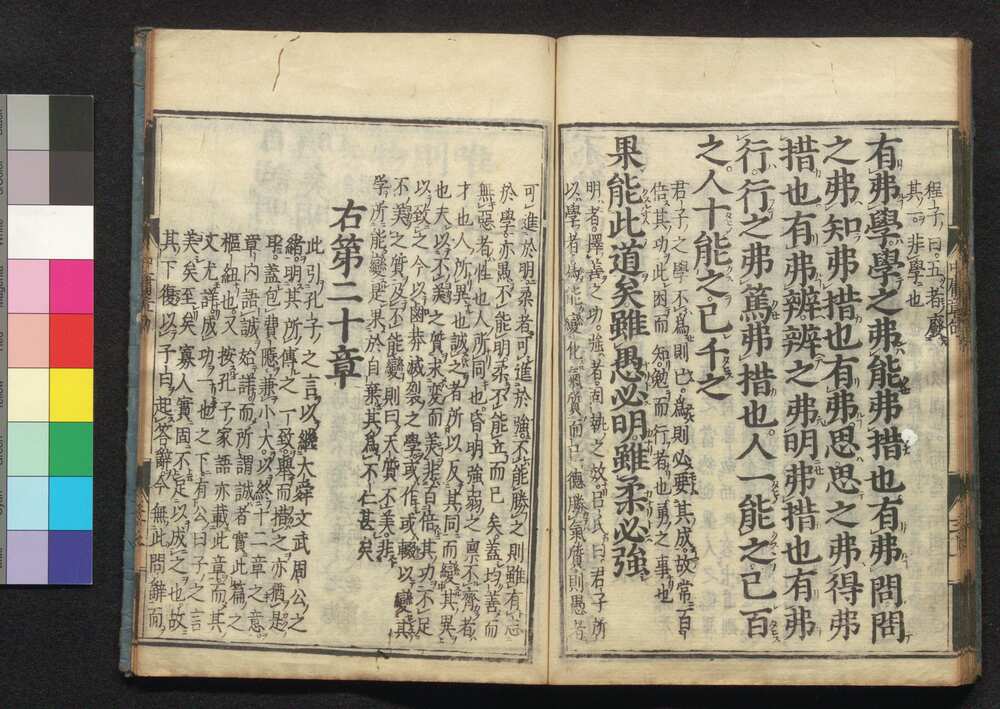 程子曰五者廢
其一非學也
有弗學學之弗能弗措也有弗問問
之弗知弗措也有弗思思之弗得弗
措也有弗辨辨之弗明弗措也有弗
行行之弗篤弗措也人一能之己百
之人十能之己千之
君子之學不爲則已爲則必要其成故常百
倍其功此困而知勉而行者也勇之事也
果能此道矣雖愚必明雖柔必強
明者擇善之功強者固執之效呂氏曰君子所
以學者爲能變化氣質而已德勝氣質則愚者
可進於明柔者可進於強不能勝之則雖有志
於學亦愚不能明柔不能立而已矣蓋均善而
無惡者性也人所同也昏明強弱之禀不齊者
才也人所異也誠之者所以反其同而變其異
也夫以不美之質求變而美非百倍其功不足
以致之今以鹵莽滅裂之學或作或輟以變其
不美之質及不能變則曰天質不美非
學所能變是果於自棄其爲不仁甚矣
右第二十章
此引孔子之言以繼大舜文武周公之
緒明其所傳之一致擧而措之亦猶是
耳蓋包費隱兼小大以終十二章之意
章內語誠始詳而所謂誠者實此篇之
樞紐也又按孔子家語亦載此章而其
文尤詳成功一也之下有公曰子之言
美矣至矣寡人實固不足以成之也故
其下復以子曰起答辭今無此問辭而